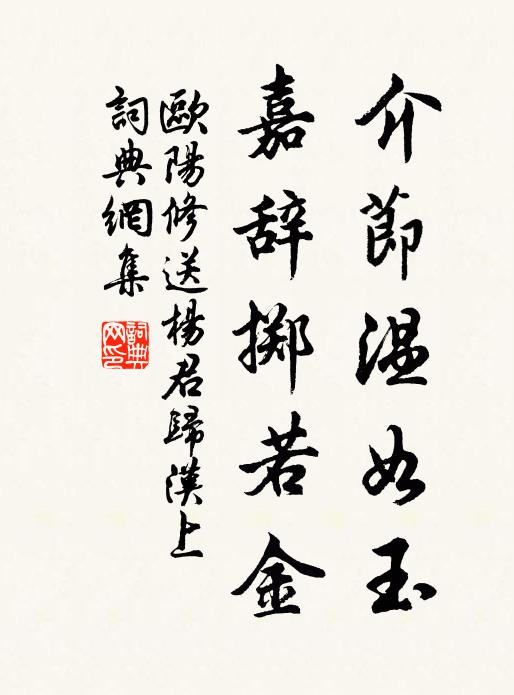 介節温如玉
嘉辞掷若金
歐陽修送楊君歸漢上
詞典網集
詞典网印